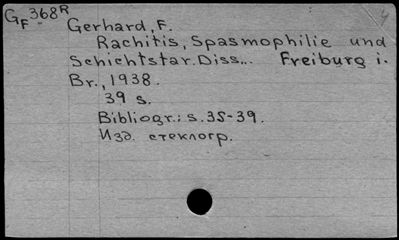 GF-368R
Gerhard, F.
Rachitis, Spasmophilie und
Schichtstar. Diss... Freiburg i.
Br., 1938.
39 s.
Bibliogr.: s. 35-39.
Изд. стеклогр.